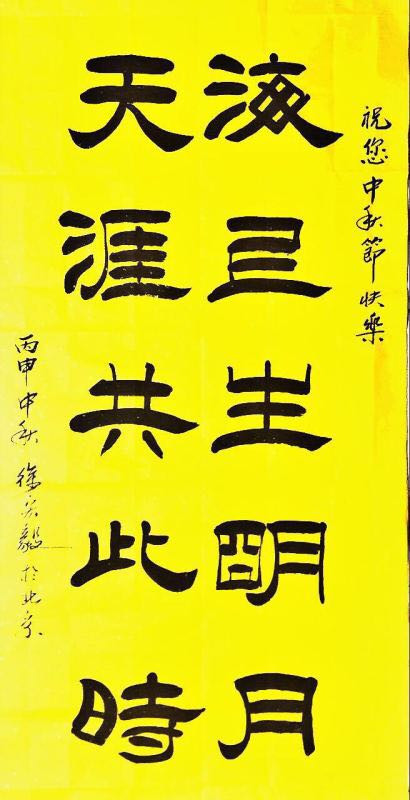 祝您中秋節快樂
海上生明月
天涯共此時
丙申中秋 徐毅於北京